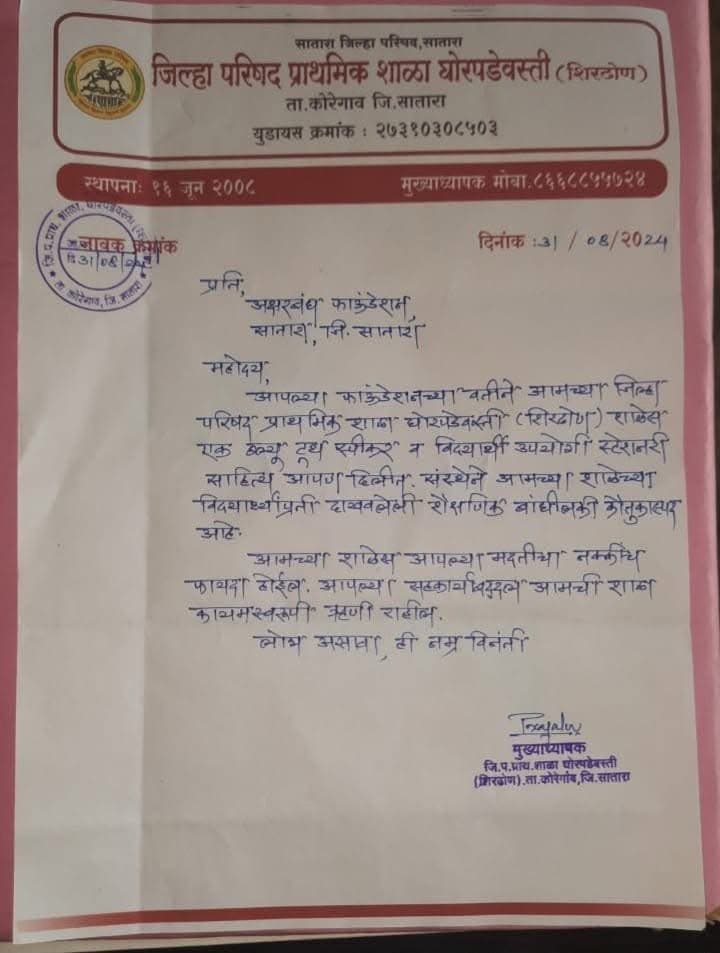 सातारा जिल्हा परिषद,सातारा
जिल्हा परिषद प्राथमिक शाळा घोरपडेवस्ती (शिरढोण)
ता.कोरेगाव जि.सातारा
युडायस क्रमांक : २७३१०३०८५०३
स्थापनाः १६ जून २००८
मुख्याध्यापक मोबा.८६६८८५५७२४
जि.प.प्राथ. शाळा, घोरपडेवस्ती
जा.नं.
दि 31/08/24
ता. कोरेगाव, जि. सातारा
जावक क्रमांक
दिनांक : 31 / 08 /2024
प्रति,
अक्षरबंध फाऊंडेशन,
सातारा, जि. सातारा
महोदय,
आपल्या फाऊंडेशनच्या वतीने आमच्या जिल्हा
परिषद प्राथमिक शाळा घोरपडेवस्ती (शिरढोण) शाळेस
एक ब्ल्यू टूथ स्पीकर व विद्यार्थी उपयोगी स्टेशनरी
साहित्य आपण दिलीत. संस्थेने आमच्या शाळेच्या
विद्यार्थ्यांप्रती दाखवलेली शैक्षणिक बांधीलकी कौतुकास्पद
आहे.
आमच्या शाळेस आपल्या मदतीचा नक्कीच
फायदा होईल. आपल्या सहकार्याबद्दल आमची शाळा
कायमस्वरूपी ऋणी राहील.
लोभ असावा, ही नम्र विनंती
मुख्याध्यापक
जि.प.प्राथ.शाळा घोरपडेवस्ती
(शिरढोण).ता.कोरेगांव,जि.सातारा